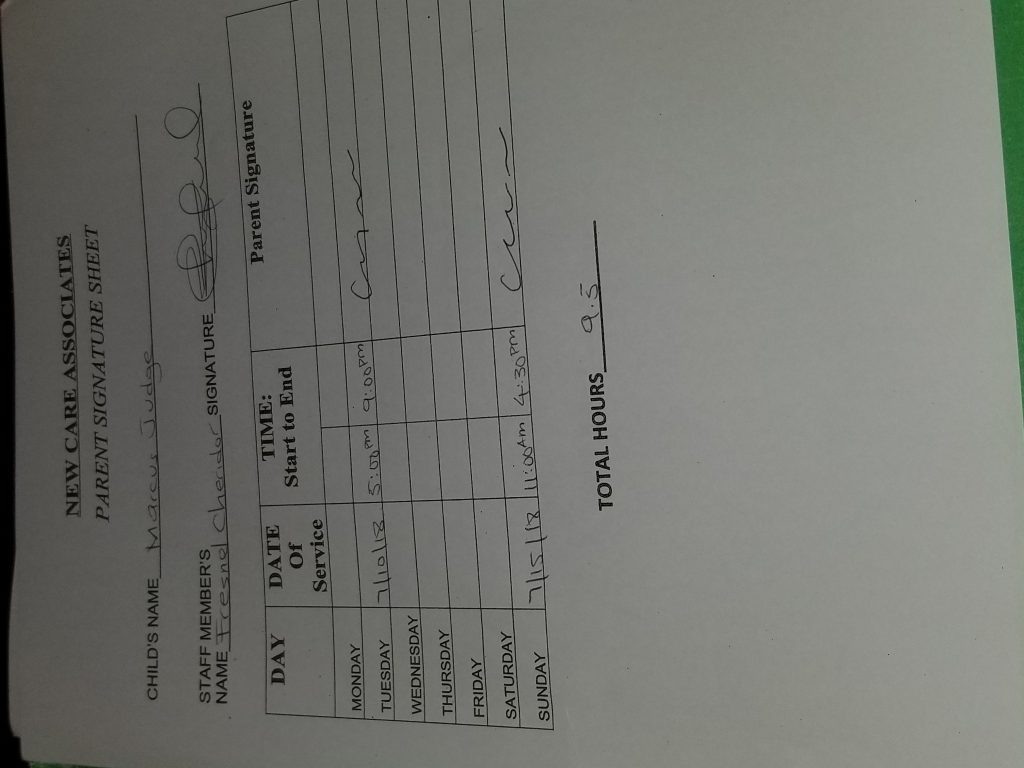 NEW CARE ASSOCIATES
PARENT SIGNATURE SHEET
CHILD'S NAME Marcus Judge
STAFF MEMBER'S
NAME Fresnel Cheridor SIGNATURE
DAY DATE Of Service TIME: Start to End Parent Signature
MONDAY
TUESDAY 7/10/18 5:00pm 9:00pm
WEDNESDAY
THURSDAY
FRIDAY
SATURDAY
SUNDAY 7/15/18 11:00Am 4:30pm
TOTAL HOURS 9.5